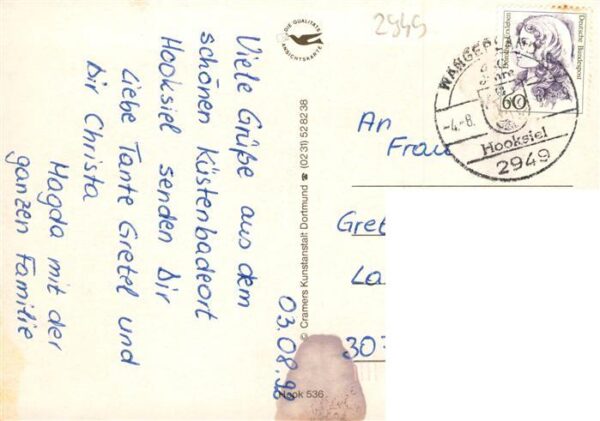 2949
DIE QUALITÄTS
ANSICHTSKARTE
Viele Grüße aus dem
schönen Küstenbadeort
Hooksiel senden Dir
Liebe Tante Gretel und
Dir Christa
Magda mit der
ganzen Familie
03.08.92
© Cramers Kunstanstalt Dortmund ☎ (0231) 528238
Hook 536
Deutsche Bundespost
60
-4.-8.
Hooksiel
2949
An
Frau
Gret
La
30